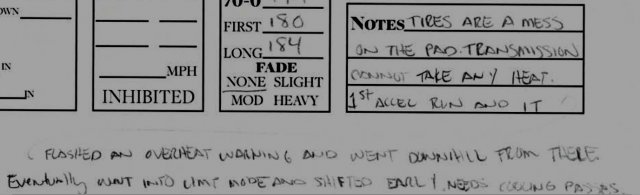 OWN
IN
IN
MPH
INHIBITED
70-0
FIRST 180
LONG 184
FADE
NONE SLIGHT
MOD HEAVY
NOTES TIRES ARE A MESS
ON THE PAD. TRANSMISSION
CANNOT TAKE ANY HEAT.
1ST ACCEL RUN AND IT
FLASHED AN OVERHEAT WARNING AND WENT DOWNHILL FROM THERE.
Eventually WENT INTO LIMP MODE AND SHIFTED EARLY. NEEDS COOLING PASSES.